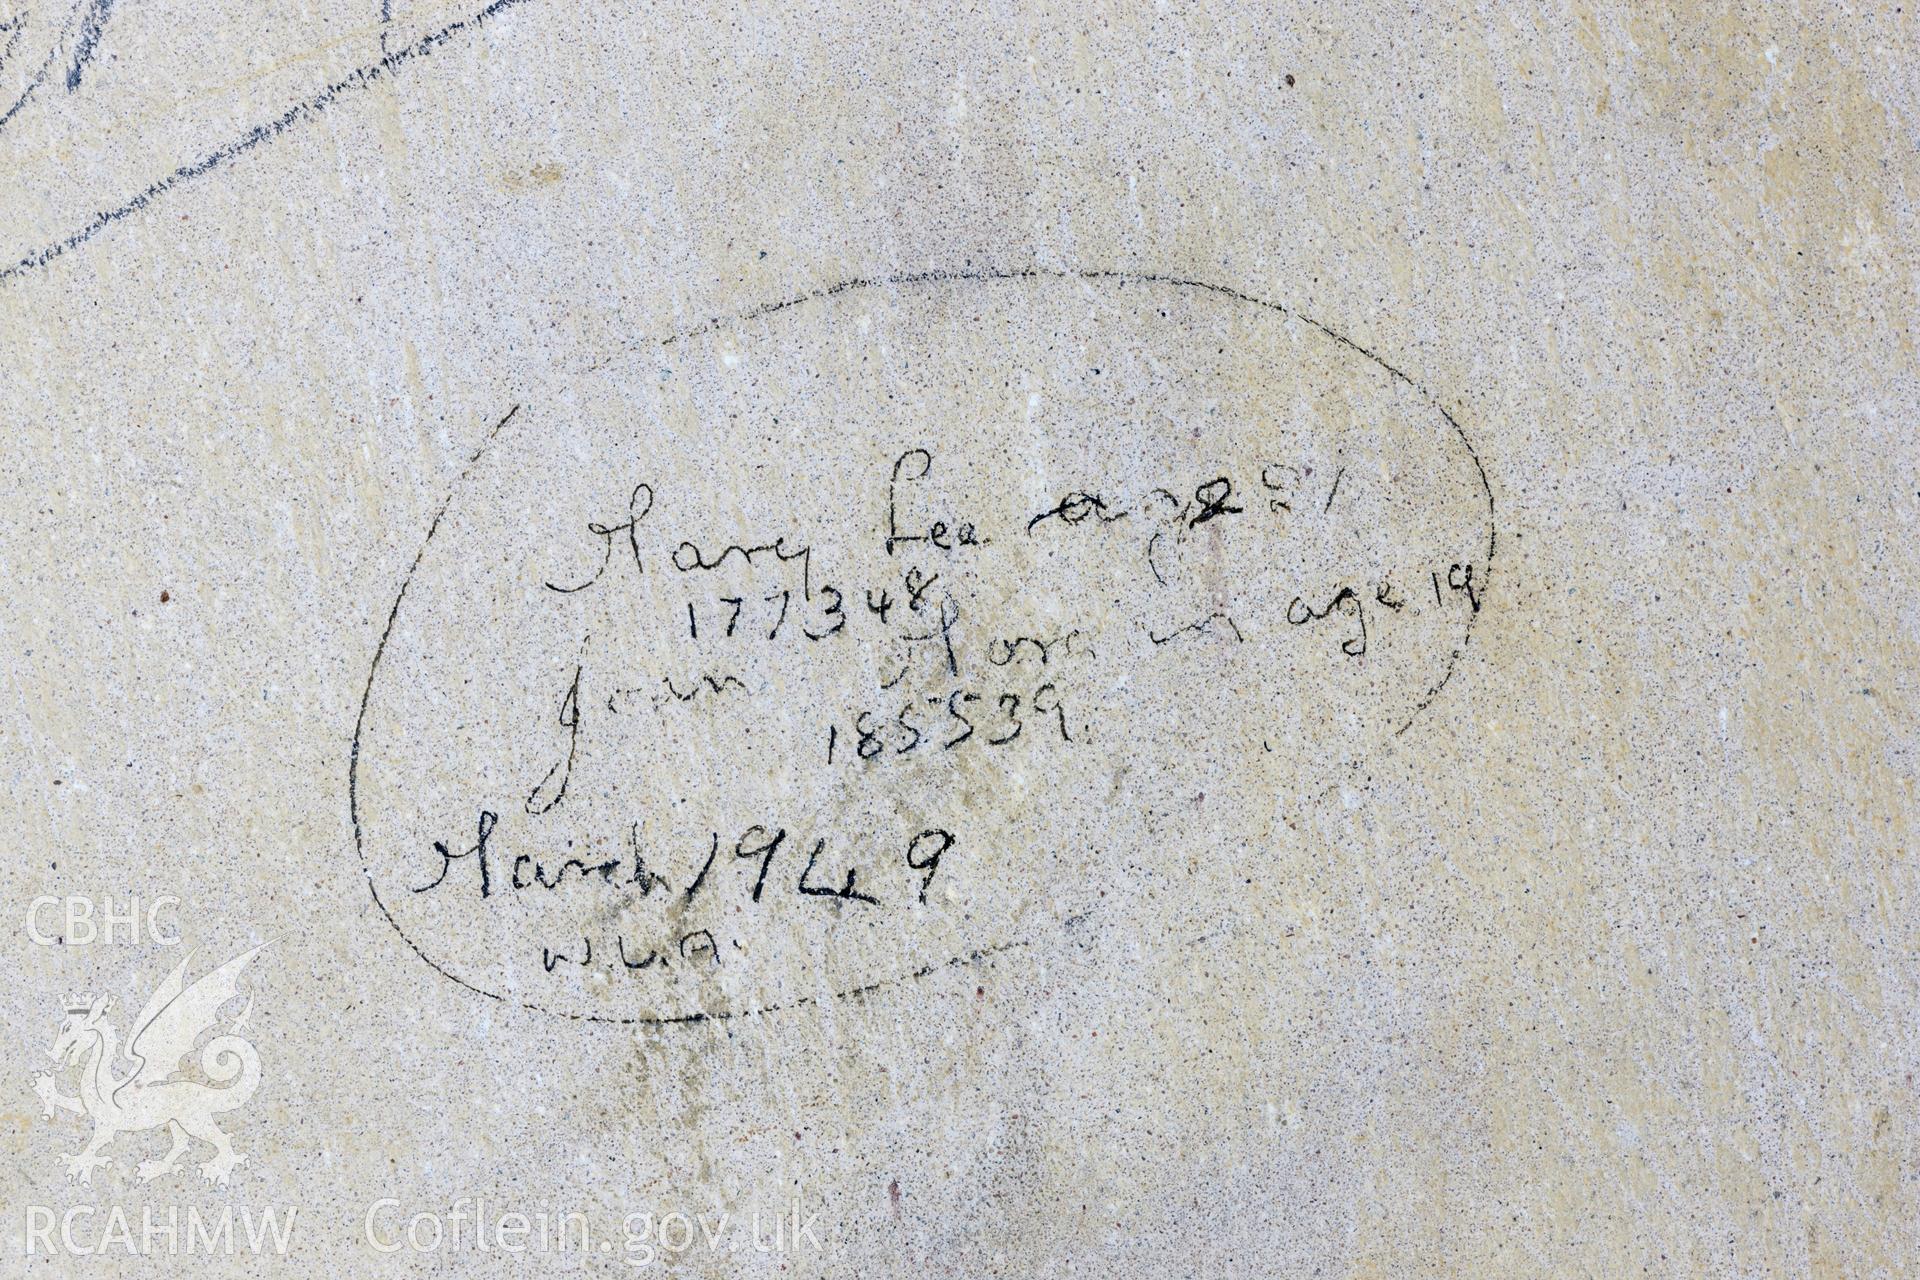 Mary Lee age 21
177348
Jean age 19
185539.
March 1949
W.L.A.
CBHC
RCAHMW Coflein.gov.uk